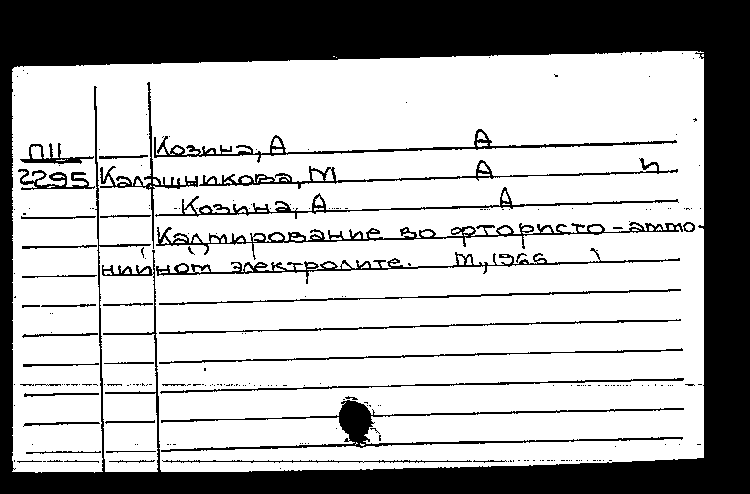 П11 Козина, А А
2295 Калашникова, М А и
Козина, А А
Кадмирование во фтористо-аммо-
нийном электролите. М., 1966